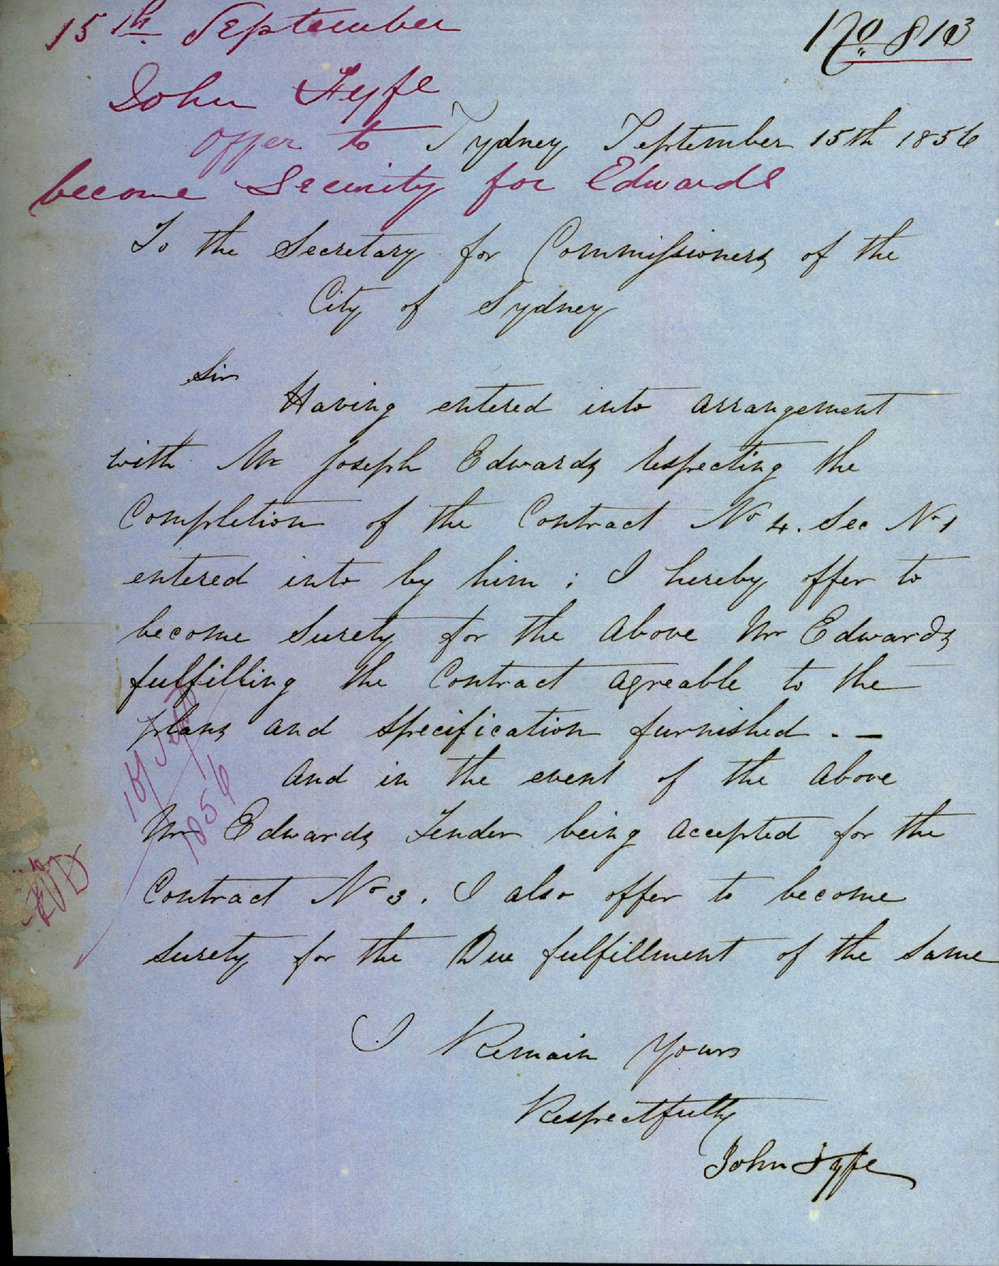 15th September
No 813
John Fyfe
offer to
become Security for Edwards
Sydney September 15th 1856
To the Secretary for Commissioners of the
City of Sydney
Sir
Having entered into arrangement
with Mr Joseph Edwards respecting the
Completion of the Contract No 4. Sec No 1
entered into by him; I hereby offer to
become Surety for the above Mr Edwards
fulfilling the Contract agreable to the
plans and specification furnished . —
And in the event of the above
Mr Edwards Tender being accepted for the
Contract No 3. I also offer to become
surety for the Due fulfillment of the same
I Remain Yours
Respectfully
John Fyfe
Sept
1856